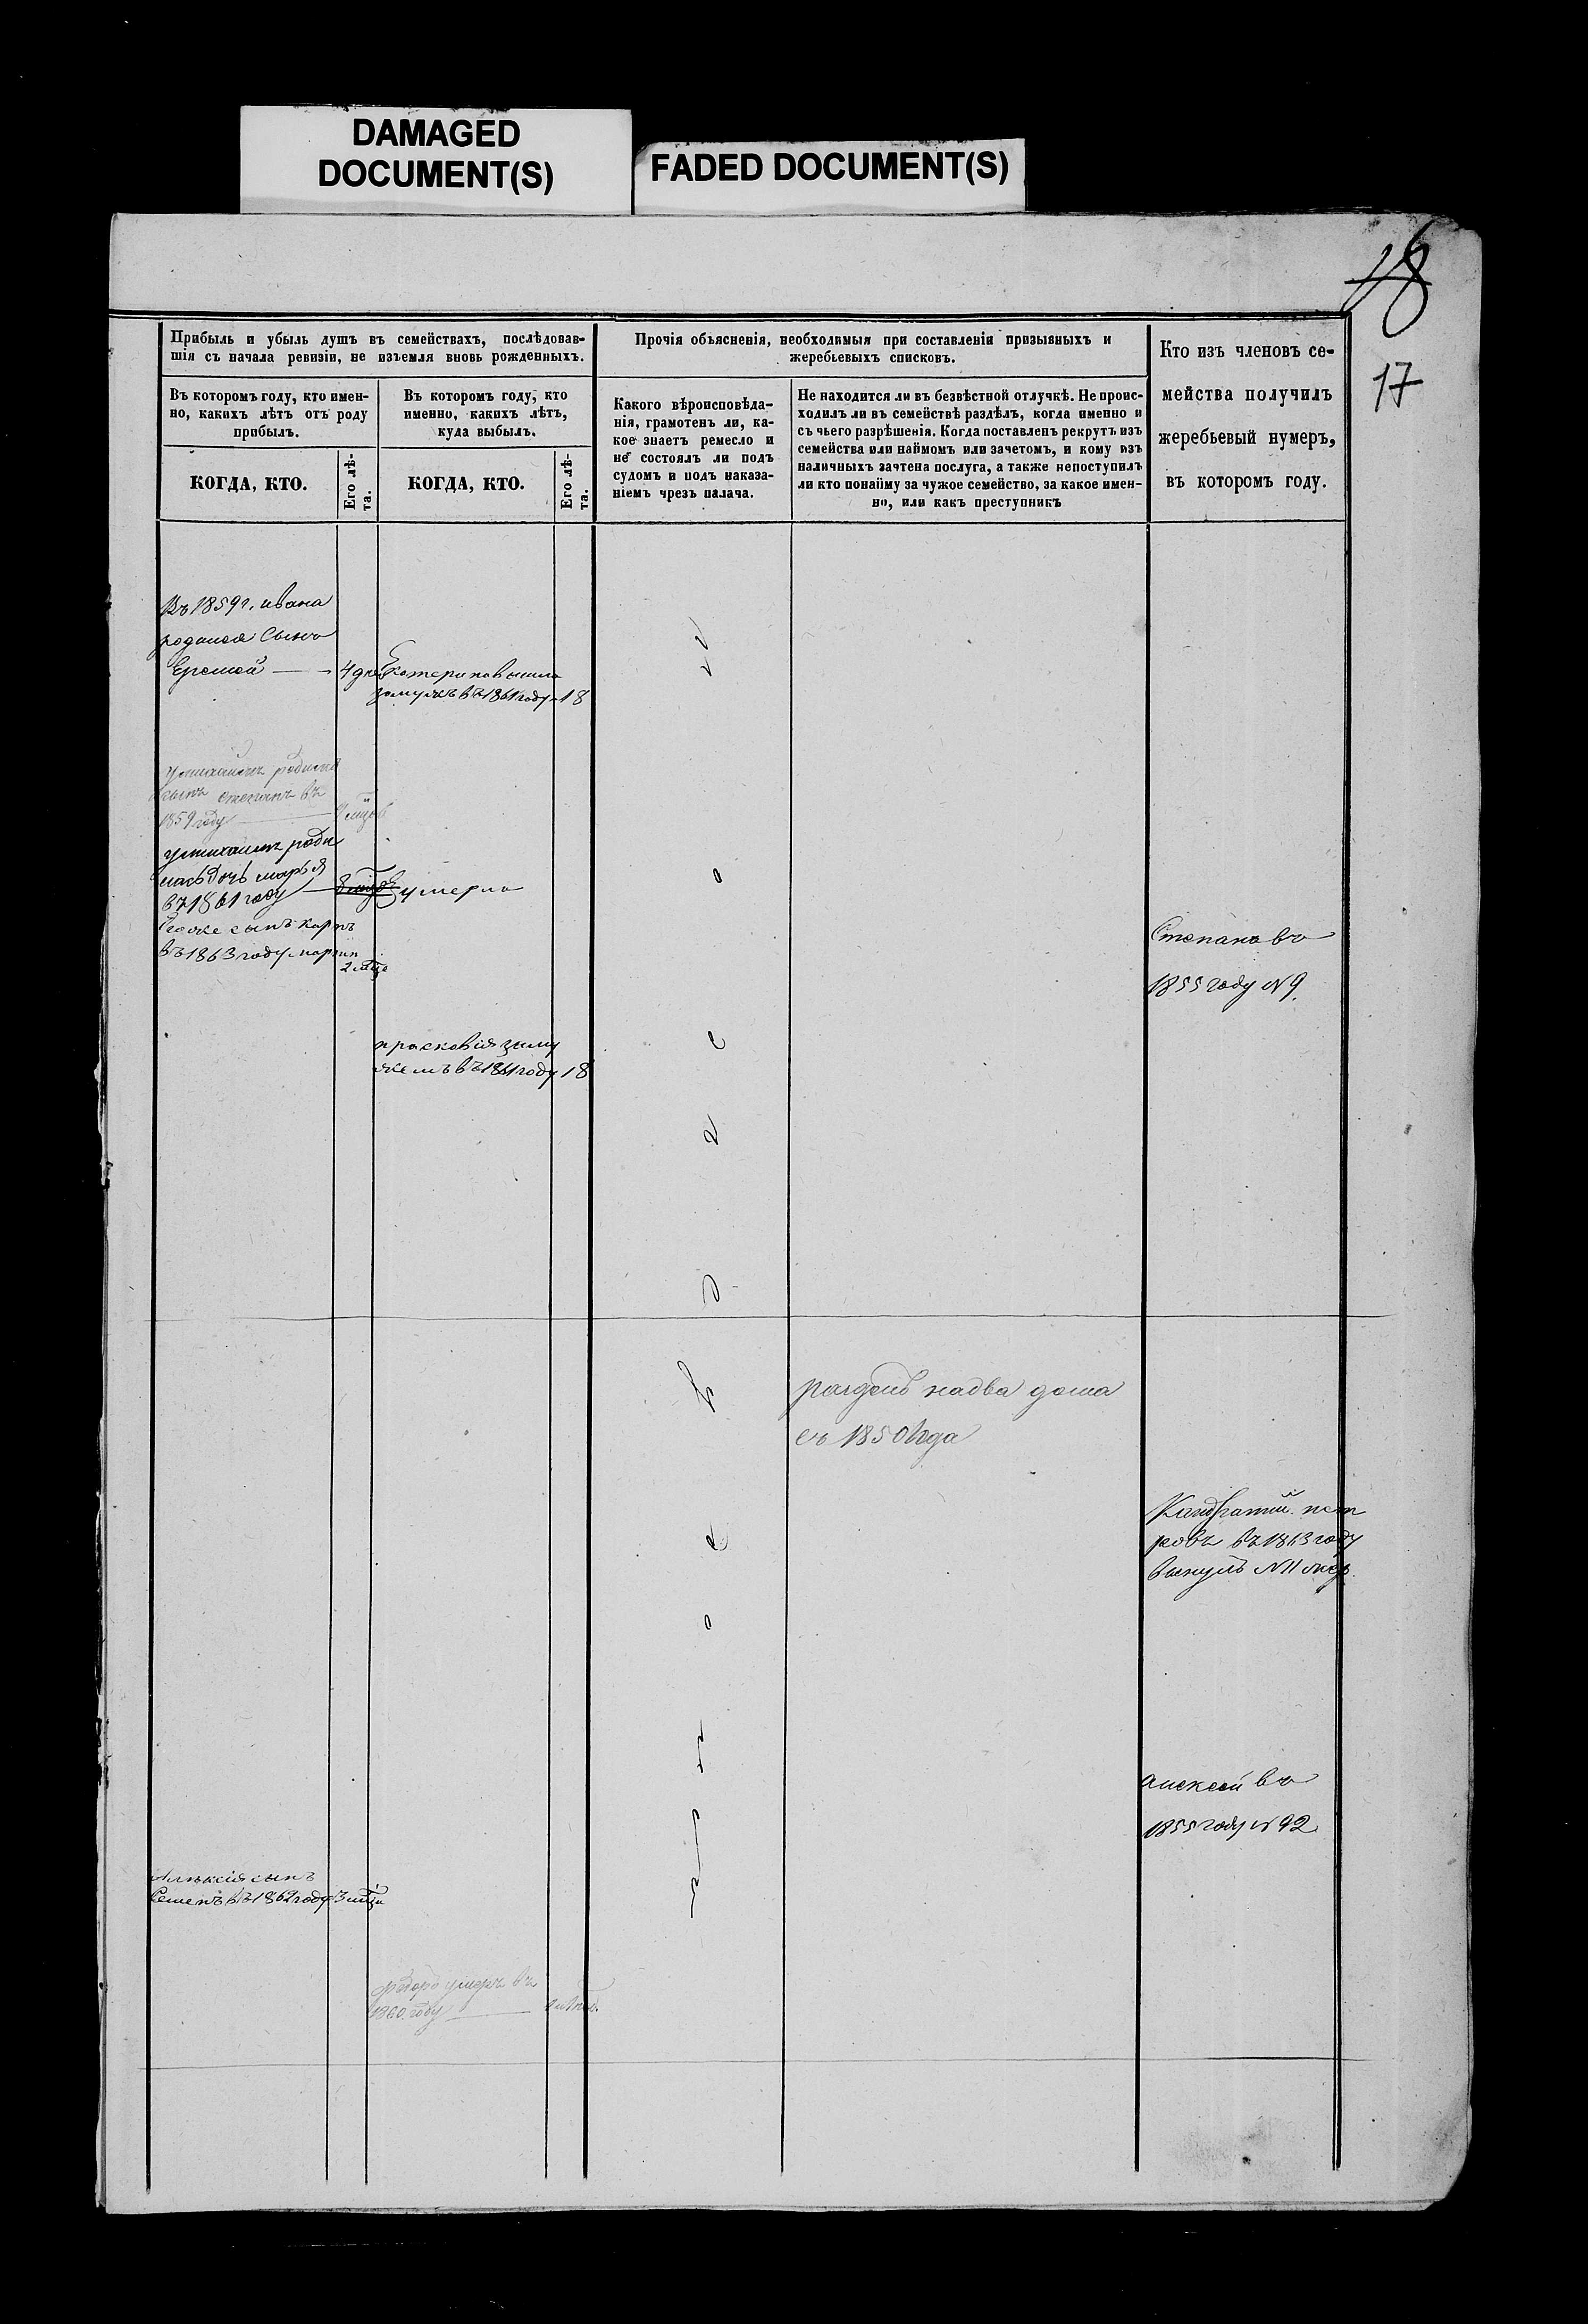 DAMAGED
DOCUMENT(S)
FADED DOCUMENT(S)
18
17
Прибыль и убыль душъ въ семействахъ, послѣдовав-
шія съ начала ревизіи, не изъемля вновь рожденныхъ.
Въ которомъ году, кто имен-
но, какихъ лѣтъ отъ роду
прибылъ.
КОГДА, КТО.
Его лѣ-
та.
Въ которомъ году, кто
именно, какихъ лѣтъ,
куда выбылъ.
КОГДА, КТО.
Его лѣ-
та.
Прочія объясненія, необходимыя при составленіи призывныхъ и
жеребьевыхъ списковъ.
Какого вѣроисповѣда-
нія, грамотенъ ли, ка-
кое знаетъ ремесло и
не состоялъ ли подъ
судомъ и подъ наказа-
ніемъ чрезъ палача.
Не находится ли въ безвѣстной отлучкѣ. Не проис-
ходилъ ли въ семействѣ раздѣлъ, когда именно и
съ чьего разрѣшенія. Когда поставленъ рекрутъ изъ
семейства или наймомъ или зачетомъ, и кому изъ
наличныхъ зачтена послуга, а также непоступилъ
ли кто понайму за чужое семейство, за какое имен-
но, или какъ преступникъ
Кто изъ членовъ се-
мейства получилъ
жеребьевый нумеръ,
въ которомъ году.
Въ 1859 г. ивана
родился Сынъ
Еремей — 4 дня
Екатерина вышла
замужъ въ 1861 году 18
родился
сынъ степанъ въ
1859 году
роди
лась дочь марья
въ 1861 году
умерла
сынъ карпъ
въ 1863 году
2 мѣца
Степанъ въ
1855 году N 9.
прасковія заму
жемъ въ 1861 году 18
раздѣлъ на два дома
съ 1850 года
Кандратий пет
ровъ въ 1863 году
вынулъ N 11
алексей въ
1855 году N 92
Алѣксія сынъ
Семенъ въ 1862 году 3 мѣца
федоръ умеръ въ
1860 году